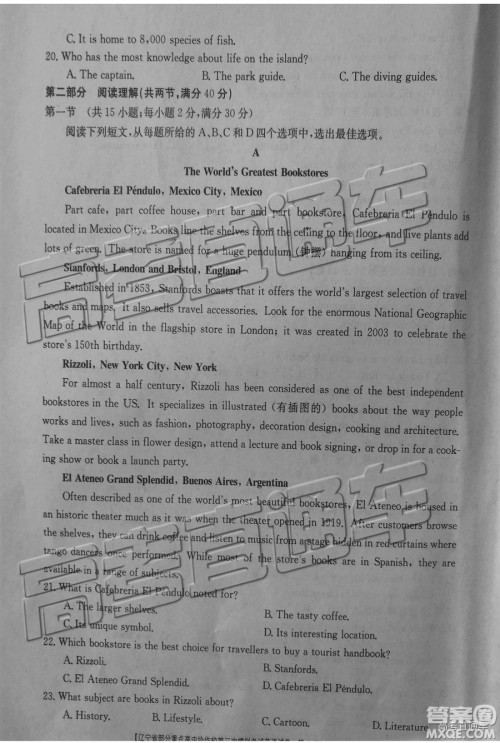 C. It is home to 8,000 species of fish.
20. Who has the most knowledge about life on the island?
A. The captain. B. The park guide. C. The diving guides.
第二部分 阅读理解(共两节,满分 40 分)
第一节 (共 15 小题;每小题 2 分,满分 30 分)
阅读下列短文,从每题所给的 A、B、C 和 D 四个选项中,选出最佳选项。
A
The World's Greatest Bookstores
Cafebreria El Péndulo, Mexico City, Mexico
Part cafe, part coffee house, part bar and part bookstore, Cafebreria El Péndulo is
located in Mexico City. Books line the shelves from the ceiling to the floor, and live plants add
lots of green. The store is named for a huge pendulum (钟摆) hanging from its ceiling.
Stanfords, London and Bristol, England
Established in 1853, Stanfords boasts that it offers the world's largest selection of travel
books and maps. It also sells travel accessories. Look for the enormous National Geographic
Map of the World in the flagship store in London; it was created in 2003 to celebrate the
store's 150th birthday.
Rizzoli, New York City, New York
For almost a half century, Rizzoli has been considered as one of the best independent
bookstores in the US. It specializes in illustrated (有插图的) books about the way people
works and lives, such as fashion, photography, decoration design, cooking and architecture.
Take a master class in flower design, attend a lecture and book signing, or drop in for a cook-
ing show or book a launch party.
El Ateneo Grand Splendid, Buenos Aires, Argentina
Often described as one of the world's most beautiful bookstores, El Ateneo is housed in
an historic theater much as it was when the theater opened in 1919. After customers browse
the shelves, they can drink coffee and listen to music from a stage hidden in red curtains where
tango dancers once performed. While most of the store's books are in Spanish, they are
available in a range of subjects.
21. What is Cafebreria El Péndulo noted for?
A. The larger shelves. B. The tasty coffee.
C. Its unique symbol. D. Its interesting location.
22. Which bookstore is the best choice for travellers to buy a tourist handbook?
A. Rizzoli. B. Stanfords.
C. El Ateneo Grand Splendid. D. Cafebreria El Péndulo.
23. What subject are books in Rizzoli about?
A. History. B. Lifestyle. C. Cartoon. D. Literature
高考直通车
高考直通车
答案圈